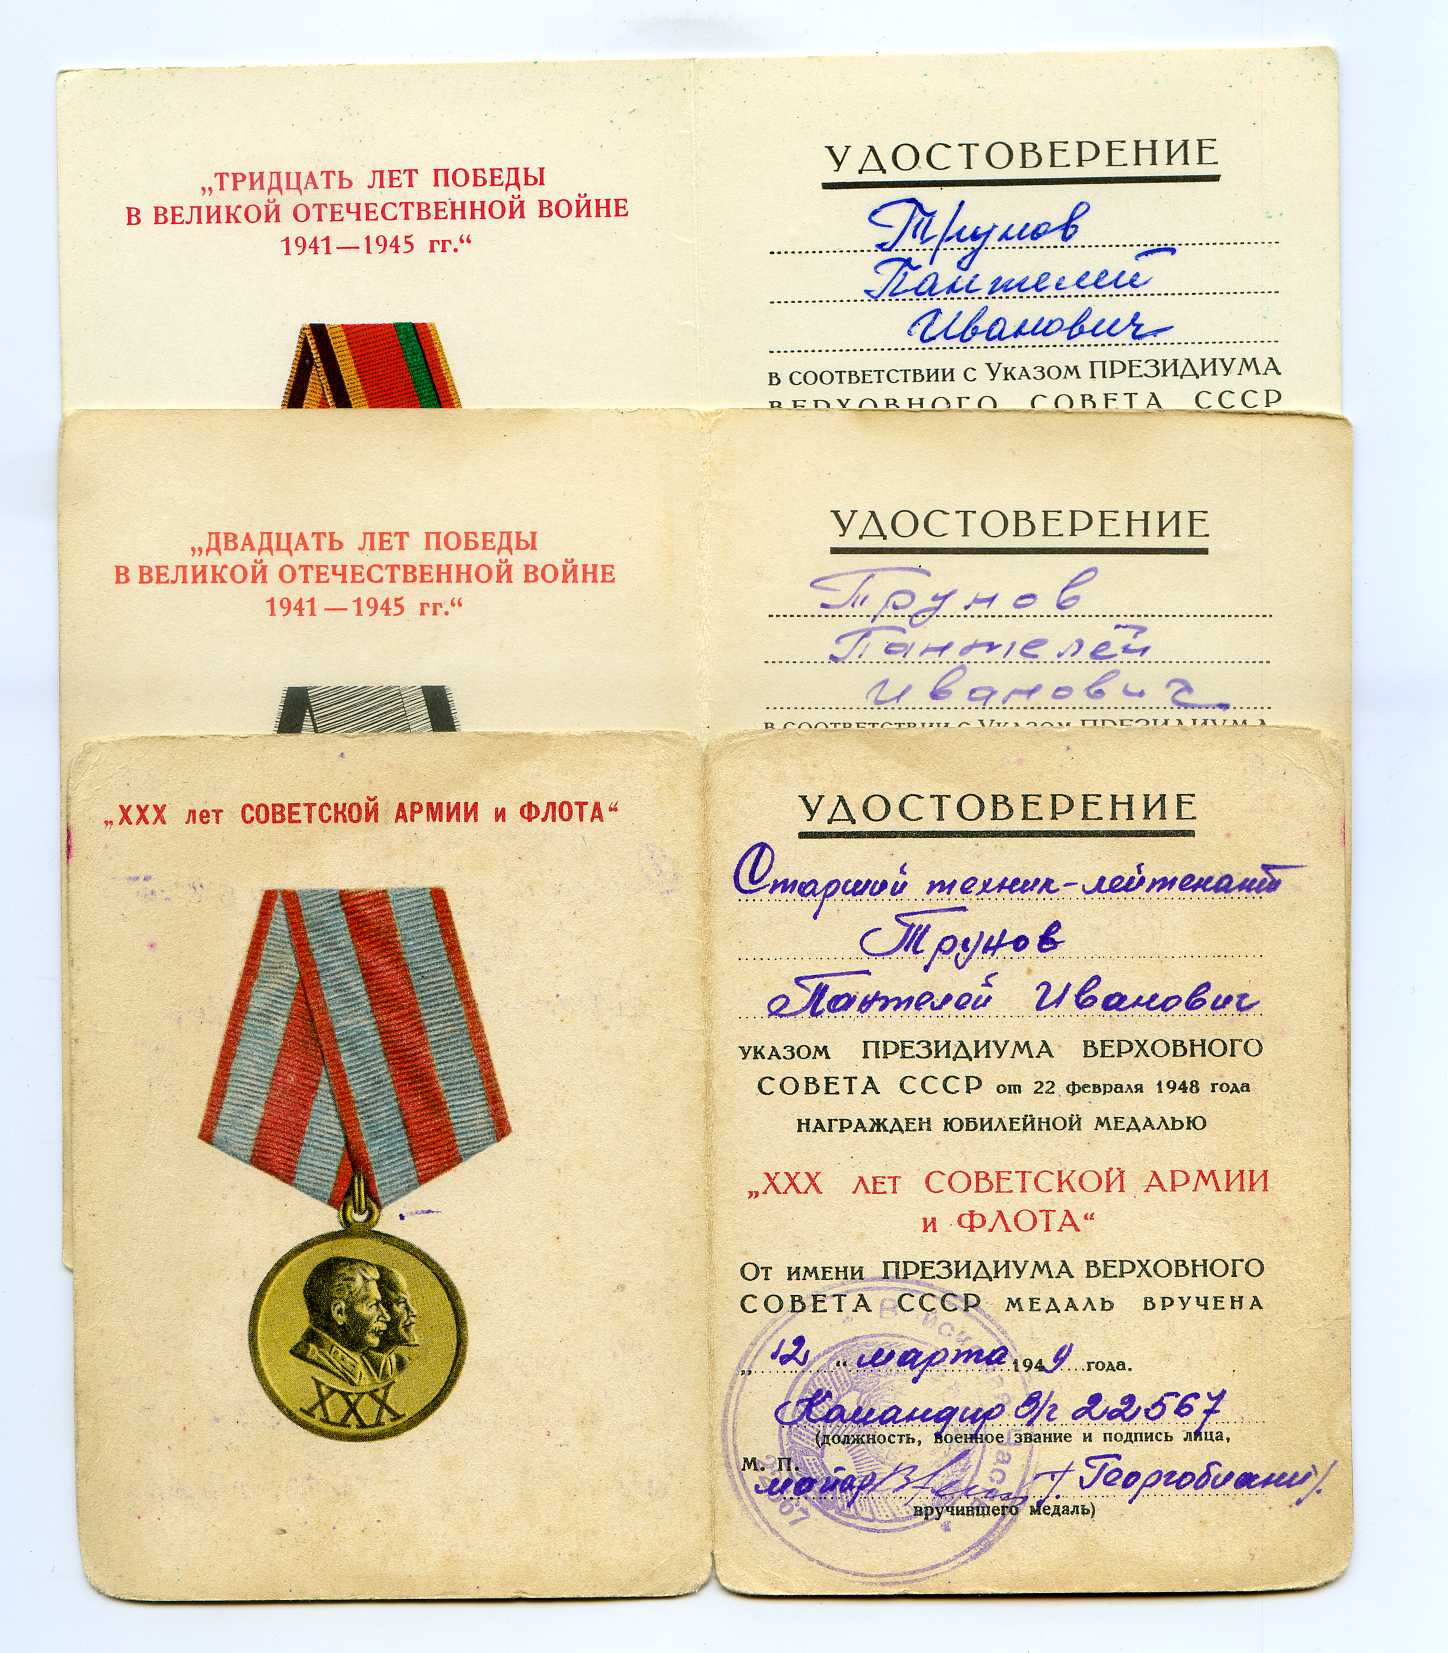 „ТРИДЦАТЬ ЛЕТ ПОБЕДЫ
В ВЕЛИКОЙ ОТЕЧЕСТВЕННОЙ ВОЙНЕ
1941—1945 гг.“
УДОСТОВЕРЕНИЕ
Трунов
Пантелей
Иванович
В СООТВЕТСТВИИ С УКАЗОМ ПРЕЗИДИУМА
ВЕРХОВНОГО СОВЕТА СССР
„ДВАДЦАТЬ ЛЕТ ПОБЕДЫ
В ВЕЛИКОЙ ОТЕЧЕСТВЕННОЙ ВОЙНЕ
1941—1945 гг.“
УДОСТОВЕРЕНИЕ
Трунов
Пантелей
Иванович
В СООТВЕТСТВИИ С УКАЗОМ ПРЕЗИДИУМА
„XXX лет СОВЕТСКОЙ АРМИИ и ФЛОТА“
XXX
УДОСТОВЕРЕНИЕ
Старший техник-лейтенант
Трунов
Пантелей Иванович
УКАЗОМ ПРЕЗИДИУМА ВЕРХОВНОГО
СОВЕТА СССР от 22 февраля 1948 года
НАГРАЖДЕН ЮБИЛЕЙНОЙ МЕДАЛЬЮ
„XXX ЛЕТ СОВЕТСКОЙ АРМИИ
и ФЛОТА“
ОТ ИМЕНИ ПРЕЗИДИУМА ВЕРХОВНОГО
СОВЕТА СССР МЕДАЛЬ ВРУЧЕНА
„12“ марта 1949 года.
Командир в/ч 22567
(должность, военное звание и подпись лица,
М. П.
майор /Георгобиани/
вручившего медаль)
22567